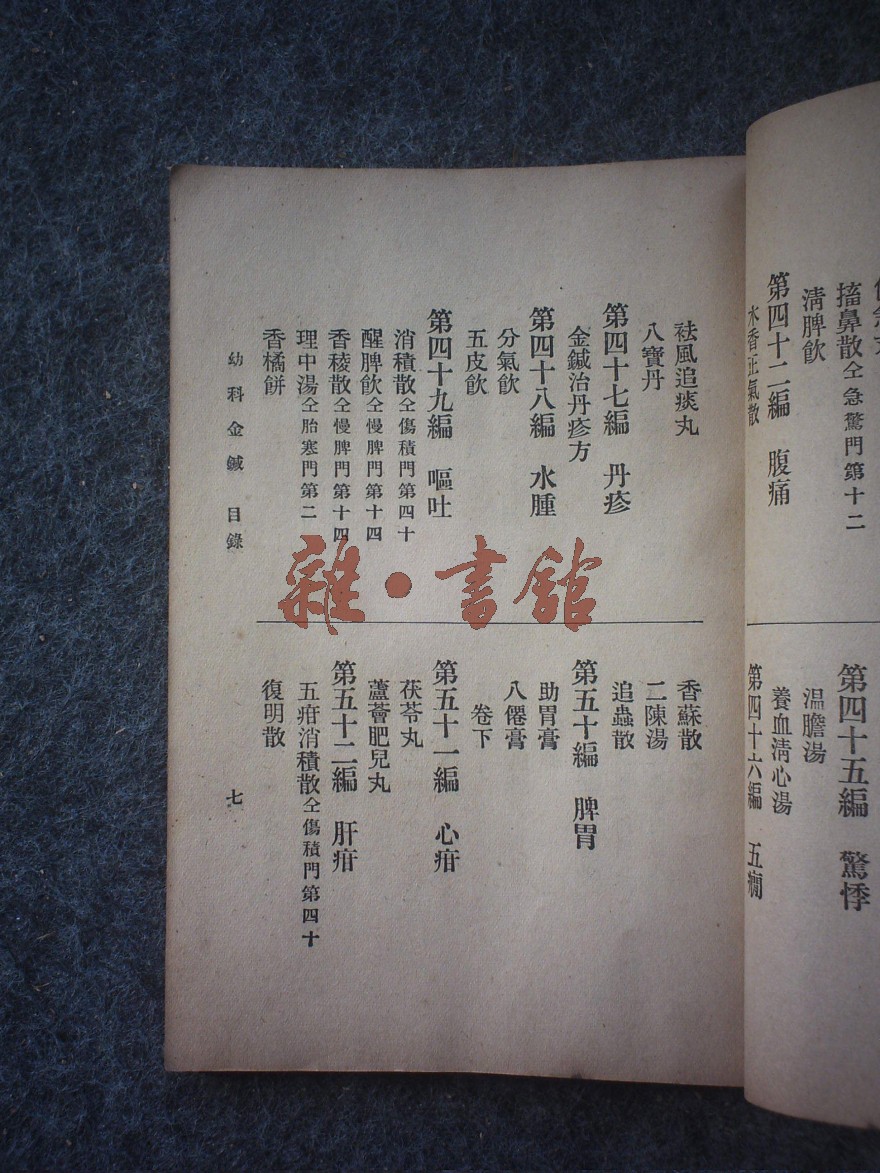 搐鼻散仝急驚門第十二
淸脾飮
第四十二編　腹痛
木香正氣散
第四十五編　驚悸
温膽湯
養血淸心湯
第四十六編　五癇
袪風追痰丸
八寶丹
第四十七編　丹疹
金鍼治丹疹方
第四十八編　水腫
分氣飮
五皮飮
第四十九編　嘔吐
消積散仝傷積門第四十
醒脾飮仝慢脾門第十四
香稜散仝慢脾門第十四
理中湯仝胎寒門第二
香橘餅
香蘇散
二陳湯
追蟲散
第五十編　脾胃
助胃膏
八僊膏
卷下
第五十一編　心疳
茯苓丸
蘆薈肥兒丸
第五十二編　肝疳
五疳消積散仝傷積門第四十
復明散
幼科金鍼　目錄
七
雜·書館